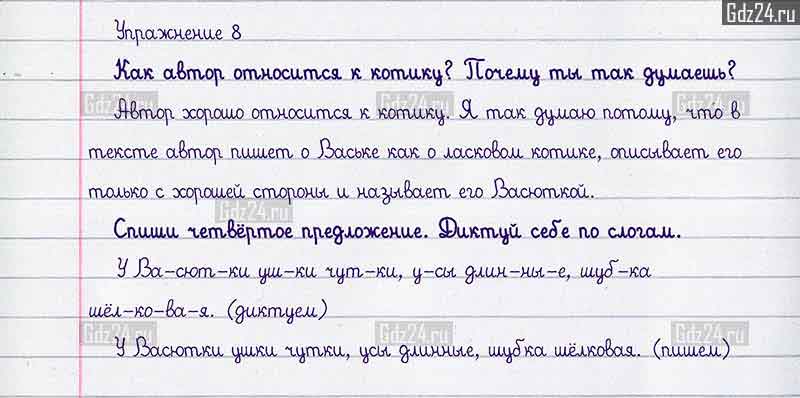 Gdz24.ru
Упражнение 8
Как автор относится к котику? Почему ты так думаешь?
Gdz24.ru Gdz24.ru Gdz24.ru
Автор хорошо относится к котику. Я так думаю потому, что в
тексте автор пишет о Ваське как о ласковом котике, описывает его
только с хорошей стороны и называет его Васюткой.
Gdz24.ru
Спиши четвёртое предложение. Диктуй себе по слогам.
У Ва-сют-ки уш-ки чут-ки, у-сы длин-ны-е, шуб-ка
шёл-ко-ва-я. (диктуем)
Gdz24.ru Gdz24.ru Gdz24.ru
У Васютки ушки чутки, усы длинные, шубка шёлковая. (пишем)